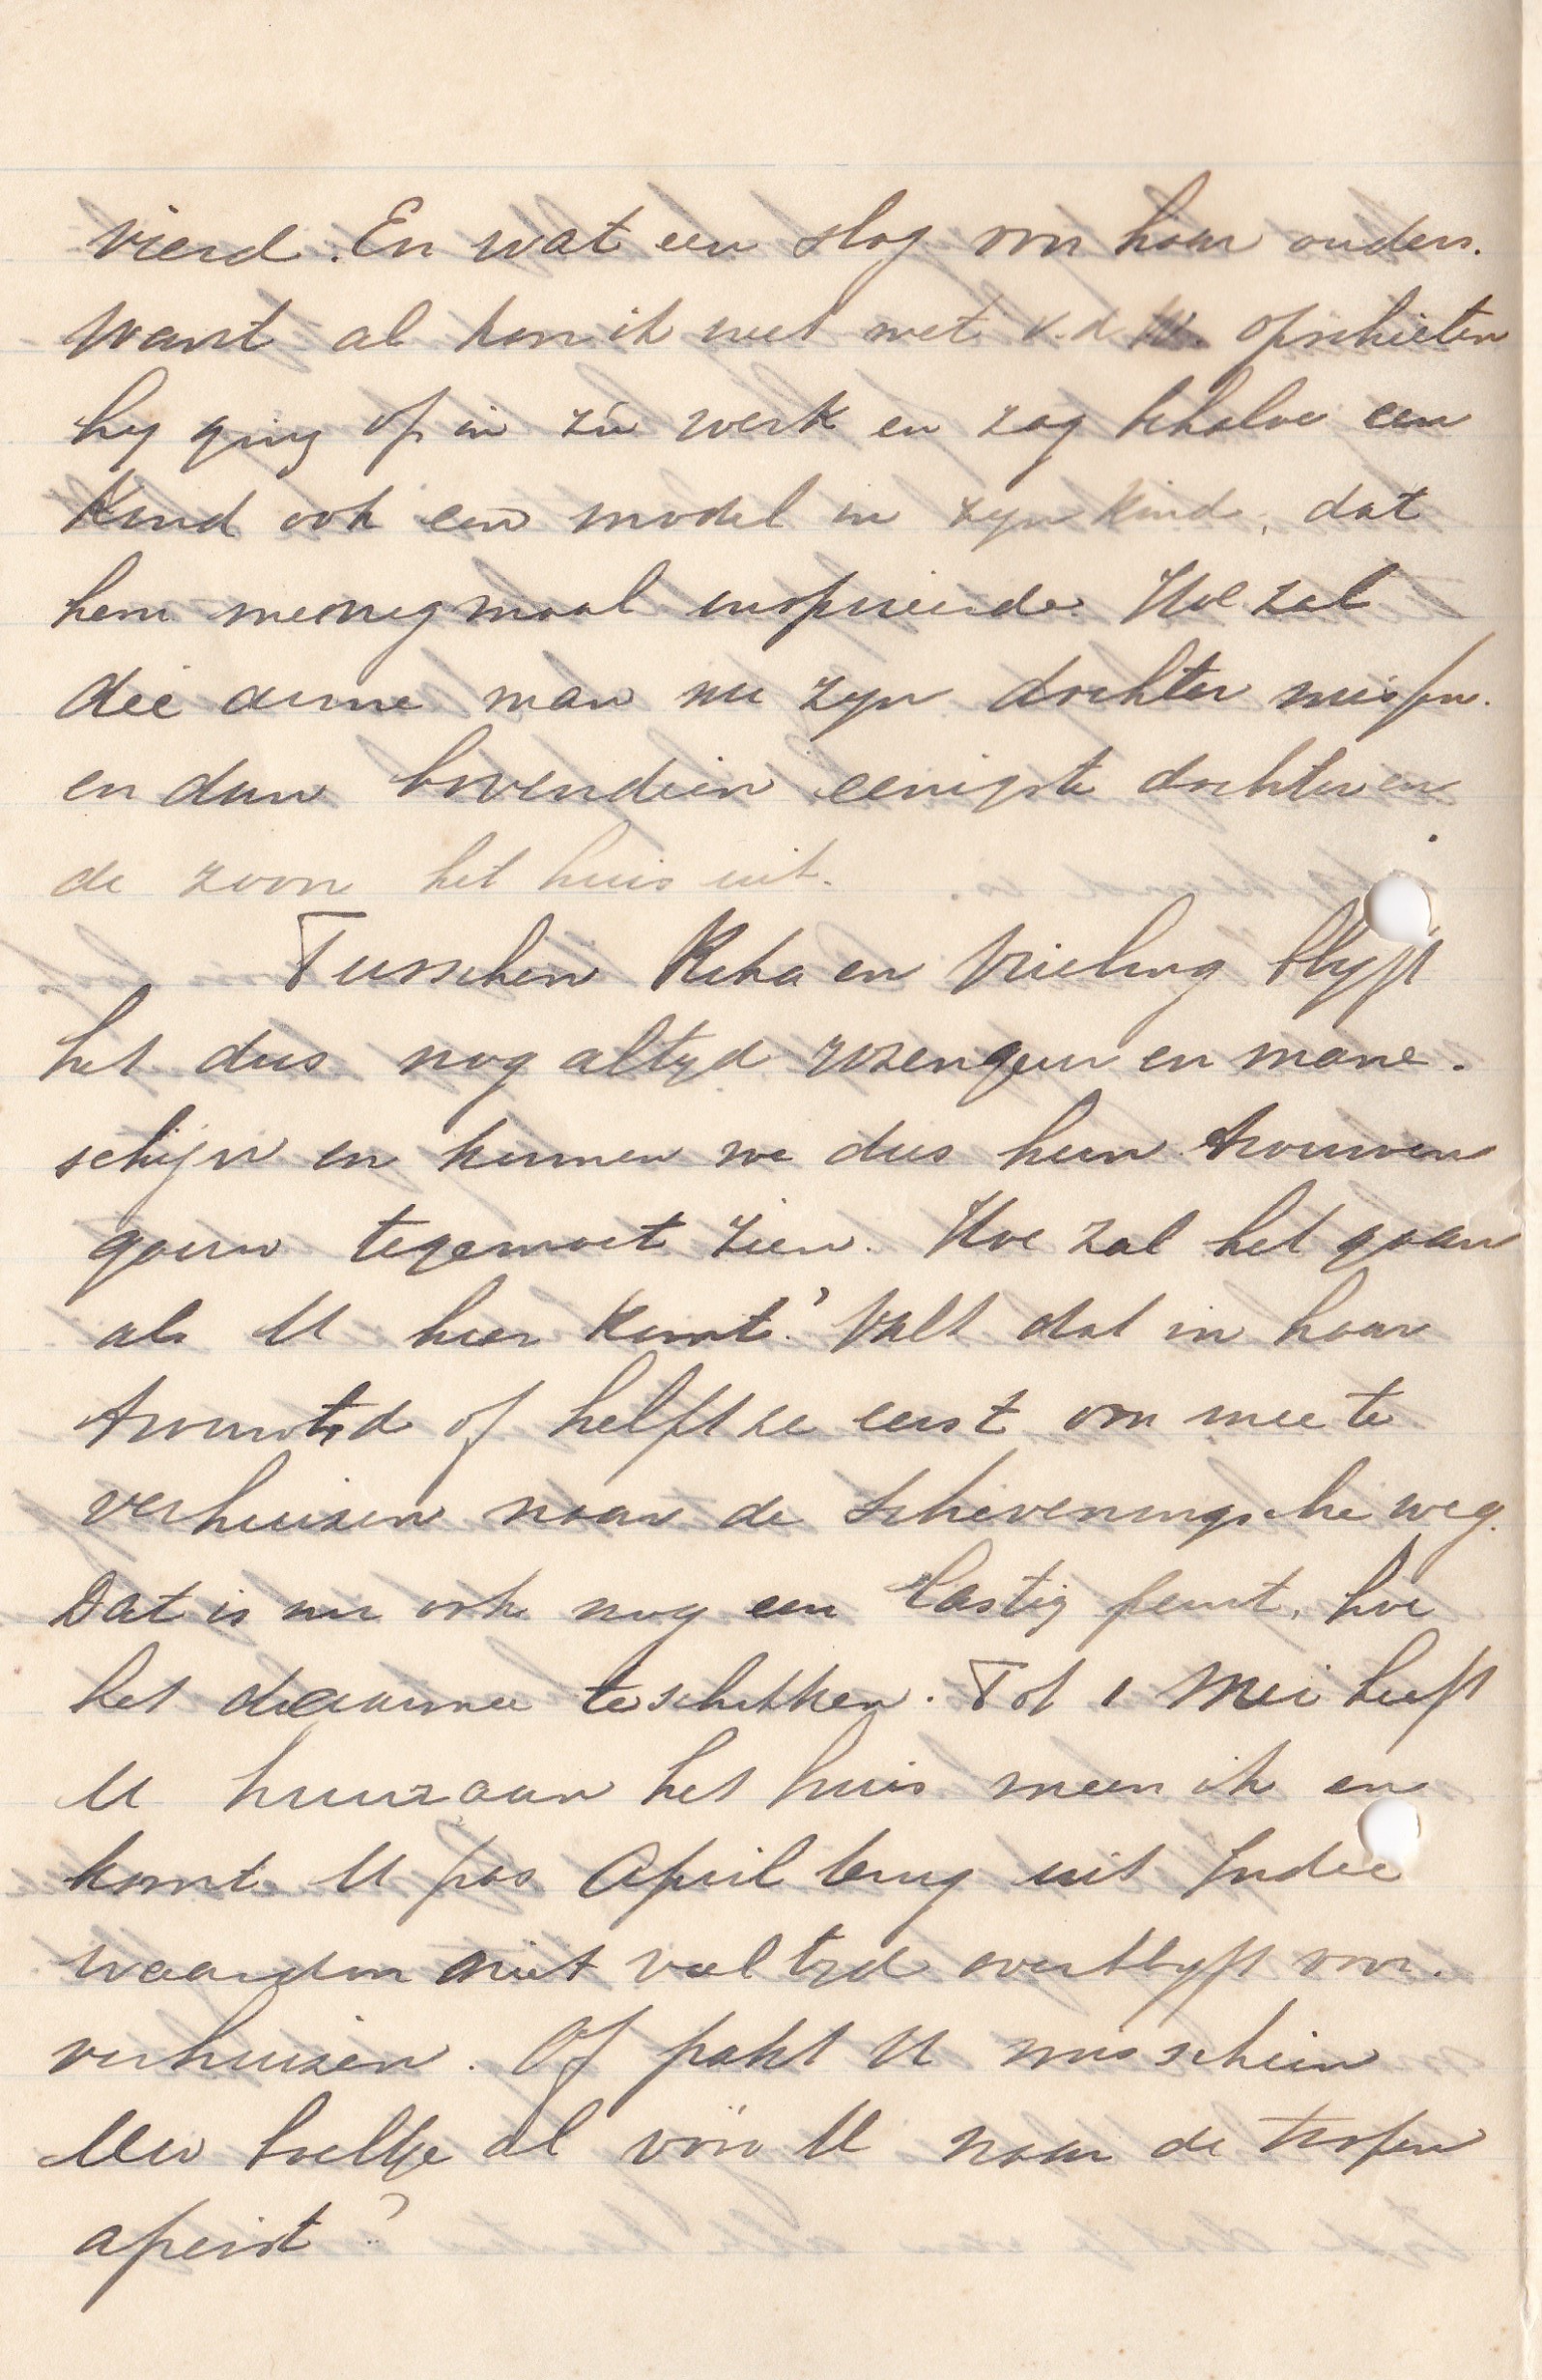 vierd. En wat een slag voor haar ouders.
Want al kon ik niet met v.d.W. opschieten
hy ging op in zn werk en zag behalve een
Kind ook een model in zyn kind, dat
hem menigmaal inspireerde. Hoe zal
die arme man nu zyn dochter missen.
en dan bovendien eenigste dochter en
de zoon het huis uit.
Tusschen Reka en Vrieling blyft
het dus nog altyd rozengeur en mane-
schijn en kunnen we dus hun trouwen
gauw tegemoet zien. Hoe zal het gaan
als U hier komt? Valt dat in haar
trouwtyd of helpt ze eerst om mee te
verhuizen naar de Scheveningsche weg.
Dat is nu ook nog een lastig punt, hoe
het daarmee te schikken. Tot 1 Mei heeft
U huur aan het huis meen ik en
komt U pas April terug uit Indië
waardoor niet veel tyd overblyft voor
verhuizen. Of pakt U misschien
Uw boeltje al vóór U naar de tropen
afreist?